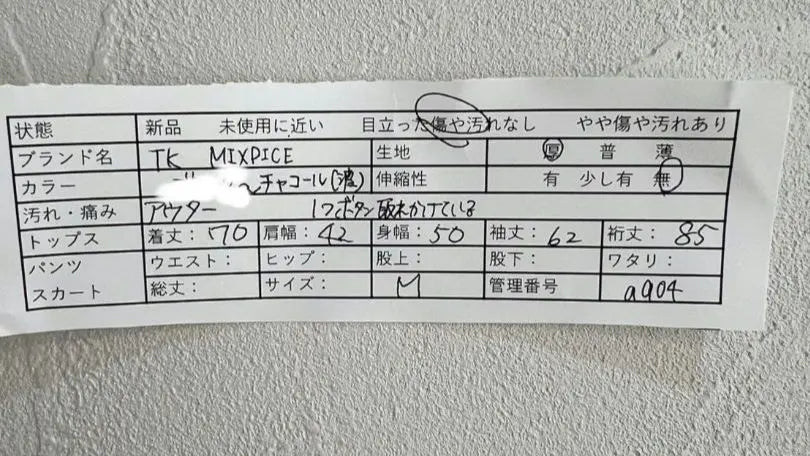 状態 新品 未使用に近い 目立った傷や汚れなし やや傷や汚れあり
ブランド名 TK MIXPICE 生地 厚 普 薄
カラー チャコール(濃) 伸縮性 有 少し有 無
汚れ・痛み アウター 1つボタン かけている
トップス 着丈：70 肩幅：42 身幅：50 袖丈：62 裄丈：85
パンツ ウエスト： ヒップ： 股上： 股下： ワタリ：
スカート 総丈： サイズ： M 管理番号 a904